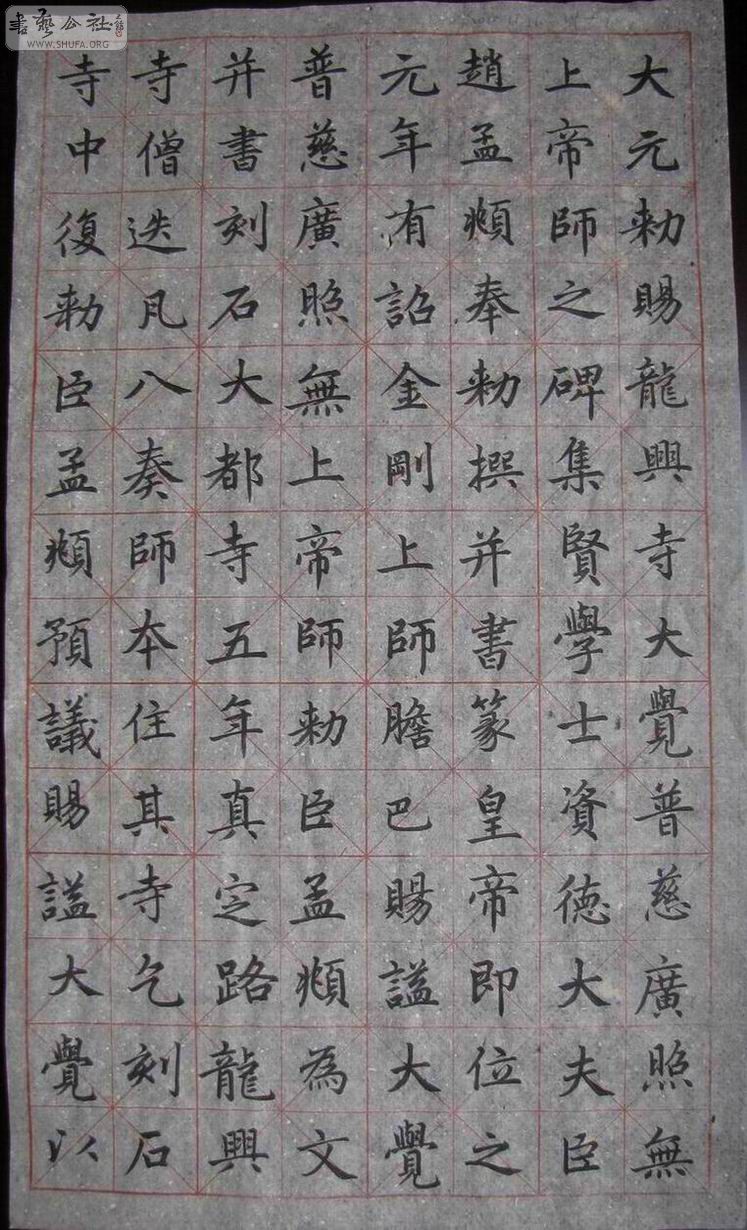 大元勅賜龍興寺大覺普慈廣照無
上帝師之碑集賢學士資德大夫臣
趙孟頫奉勅撰并書篆皇帝即位之
元年有詔金剛上師膽巴賜謚大覺
普慈廣照無上帝師勅臣孟頫為文
并書刻石大都寺五年真定路龍興
寺僧迭凡八奏師本住其寺乞刻石
寺中復勅臣孟頫預議賜謚大覺以
書藝公社
WWW.SHUFA.ORG